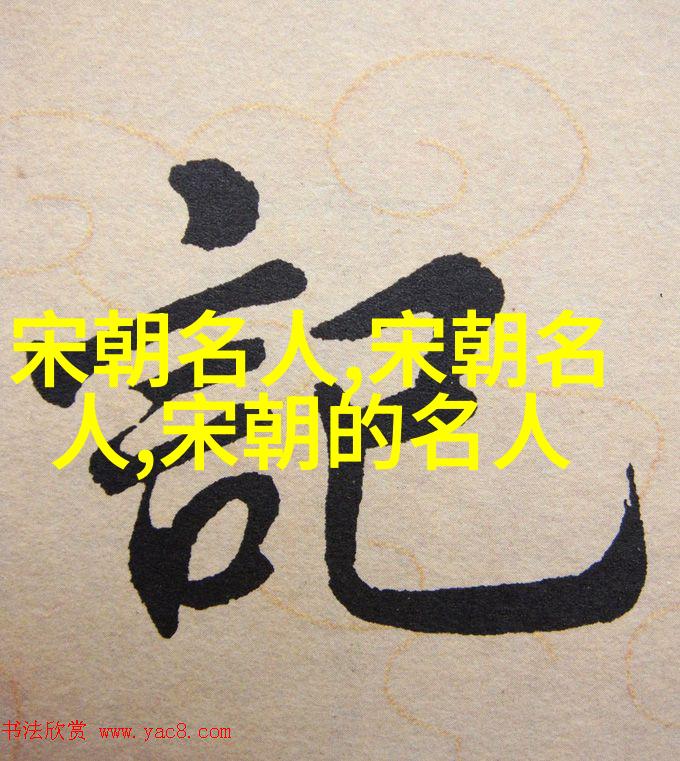 記
宋朝名人,宋朝名
人,宋朝的名人
书法欣赏 www.yac8.com